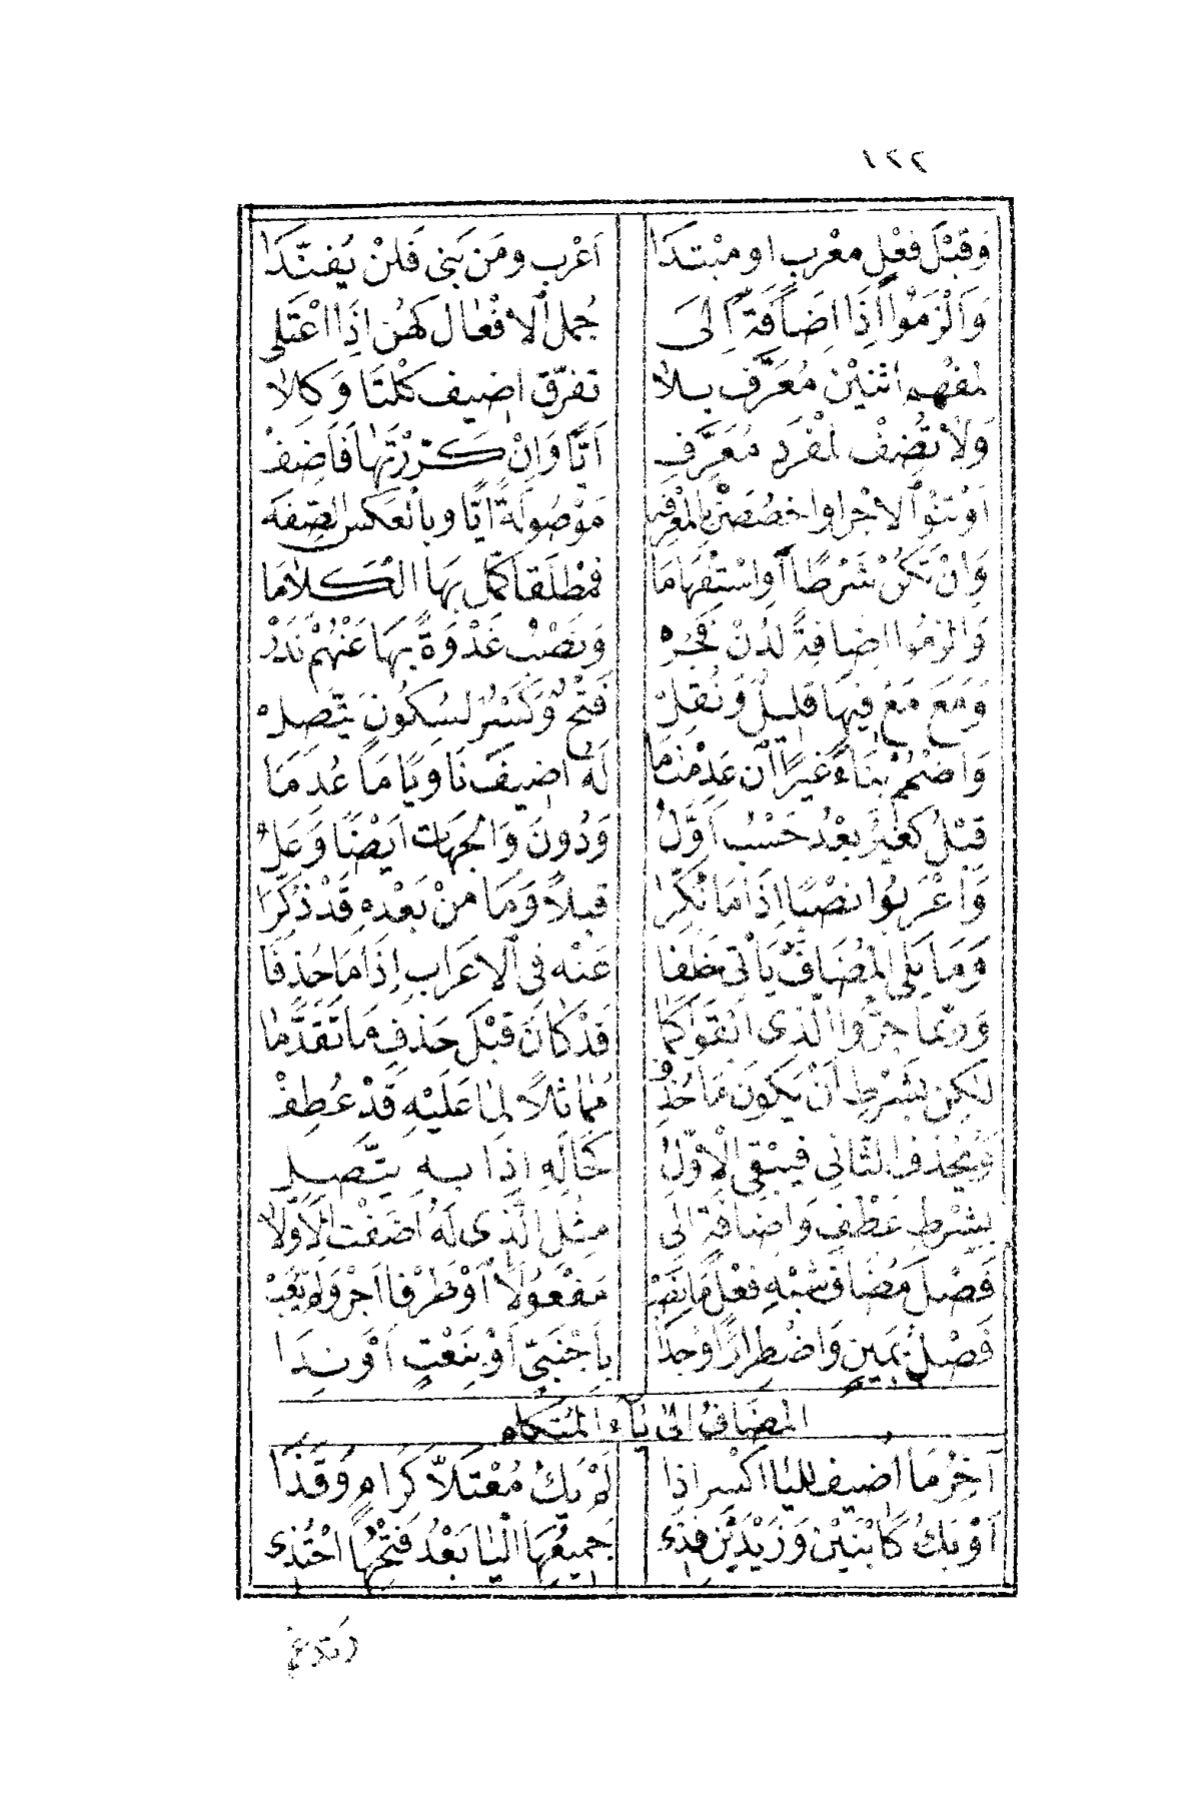 ١٢٢
وَقَبْلَ فِعْلٍ مُعْرَبٍ اوْ مُبْتَدَا اَعْرِبْ ومَنْ بَنَى فَلَنْ يُفَنَّدَا
وَاَلْزَمُوْا اِذَا اِضَافَةً اِلَى جُمَلِ الْافْعَالِ كَهُنْ اِذَا اعْتَلَى
لمفْهمِ اثْنَيْنِ مُعَرَّفٍ بِلاَ تَفَرُّقٍ اُضِيفَ كِلْتَا وَكِلاَ
وَلاَ تُضِفْ لمُفْرَدٍ مُعَرَّفِ اَيًّا وَاِنْ كَرَّرْتَهَا فَاَضِفْ
اَوْ تَنْوِ الاَجْزَا واخْصُصَنْ بِالمَعْرِفَهْ مَوْصُولَةً اَيًّا وبِالعَكْسِ الصِّفَهْ
وَاِنْ تَكُنْ شَرْطًا اَوِ اسْتِفْهَامَا فَمُطْلَقًا كَمِّلْ بِهَا الْكَلاَمَا
وَالزمُوا اِضَافةً لَدُنْ فَجَرّ وَنَصْبُ غُدْوَةً بِهَا عَنْهُمْ نَدَرْ
وَمَعَ مَعْ فِيهَا قَلِيلٌ وَنُقِلْ فَتْحٌ وَكَسْرٌ لِسُكُونٍ يَتَّصِلْ
وَاضْمُمْ بِنَاءً غَيْرًا اِنْ عَدِمْتَ مَا لَهُ اُضِيفَ نَاوِيًا مَا عُدِمَا
قَبْلُ كَغَيْرُ بَعْدُ حَسْبُ اَوَّلُ وَدُونَ وَالجِهَاتُ اَيْضًا وَعَلُ
وَاَعْرَبُوا نَصْبًا اِذَا مَا نُكِّرَا قَبْلاً وَمَا مِنْ بَعْدِهِ قَدْ ذُكِرَا
وَمَا يَلِي المُضَافَ يَأْتِي خَلَفَا عَنْهُ فِي الاعْرَابِ اِذَا مَا حُذِفَا
وَرُبَّمَا جَرُّوا الَّذِى اَبْقَوْا كَمَا قَدْ كَانَ قَبْلَ حَذْفِ مَا تَقَدَّمَا
لٰكِنْ بِشَرْطِ اَنْ يَكُونَ مَا حُذِفْ مُمَاثِلاً لِمَا عَلَيْهِ قَدْ عُطِفْ
وَيُحْذَفُ الثَّانِي فَيَبْقَى الْاَوَّلُ كَحَالِهِ اِذَا بِهِ يَتَّصِلُ
بِشَرْطِ عَطْفٍ وَاِضَافَةٍ اِلَى مِثْلِ الَّذِى لَهُ اَضَفْتَ الْاَوَّلاَ
فَصْلَ مُضَافٍ شِبْهِ فِعْلٍ مَا نَصَبْ مَفْعُولاً اَوْ ظَرْفًا اَجِزْ وَلَمْ يُعَبْ
فَصْلُ يَمِينٍ وَاضْطِرَارًا وُجِدَا بِاَجْنَبِيٍّ اَوْ بِنَعْتٍ اَوْ نِدَا
المضَافُ اِلىٰ يَاءِ المُتَكَلِّم
آخِرَ مَا اُضِيفَ لِليَا اكْسِرْ اِذَا لَمْ يَكُ مُعْتَلاًّ كَرَامٍ وَقَذَا
اَوْ يَكُ كَابْنَيْنِ وَزَيْدِيْنَ فَذِى جَمِيعُهَا الْيَا بَعْدُ فَتْحُهَا احْتُذِى
وتدغم